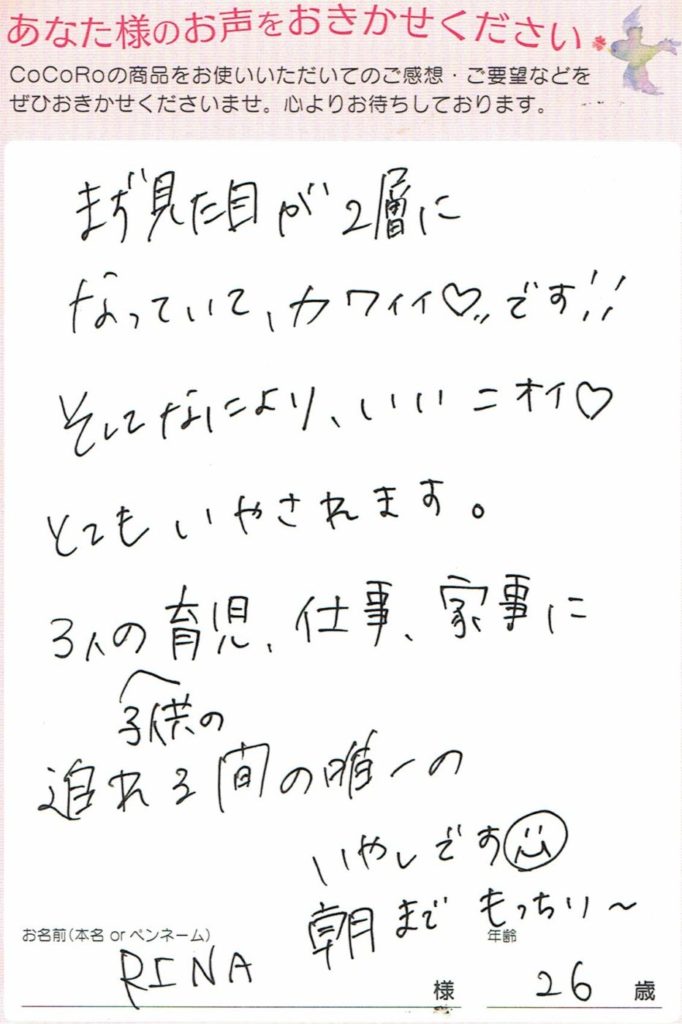 あなた様のお声をおきかせください
CoCoRoの商品をお使いいただいてのご感想・ご要望などを
ぜひおきかせくださいませ。心よりお待ちしております。
まず見た目が2層に
なっていて、カワイイ♡〃です!!
そしてなにより、いいニオイ♡
とてもいやされます。
3人の育児、仕事、家事に
子供の
追れる間の唯一の
いやしです☺
朝までもっちり〜
お名前(本名 or ペンネーム)
RINA 様
年齢
26 歳